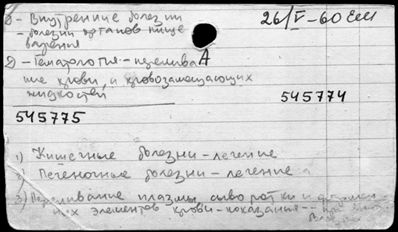 В - Внутренние болезни 26/V-60 Ем
- болезни органов пище
варения
Д - Гематология - перелива А
ние крови и кровозамещающих
жидкостей
545774
545775
1) Кишечные болезни - лечение
2) Печеночные болезни - лечение
3) Переливание плазмы, сыворотки и
ных элементов крови - показания -